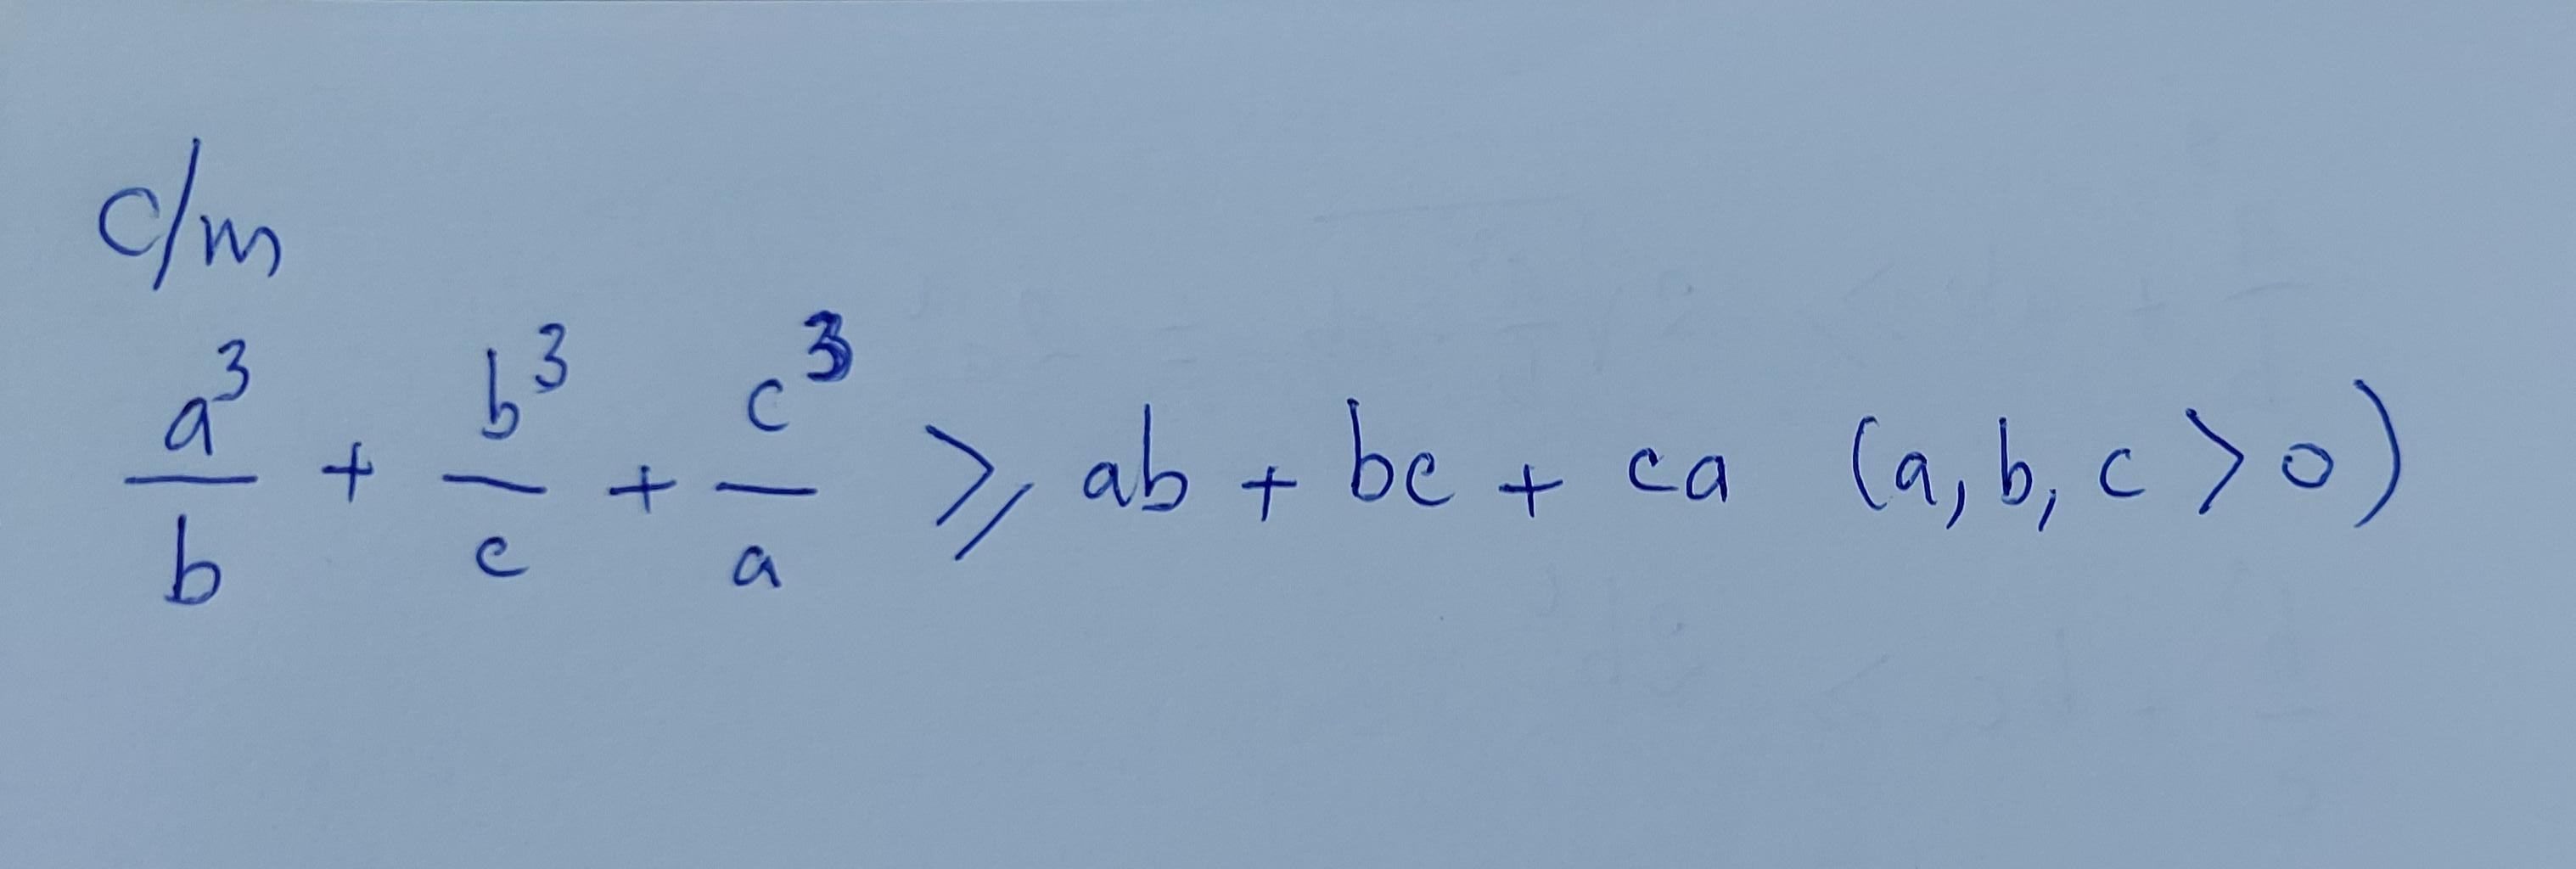 c/m
a³/b + b³/c + c³/a ⩾ ab + bc + ca (a, b, c > 0)